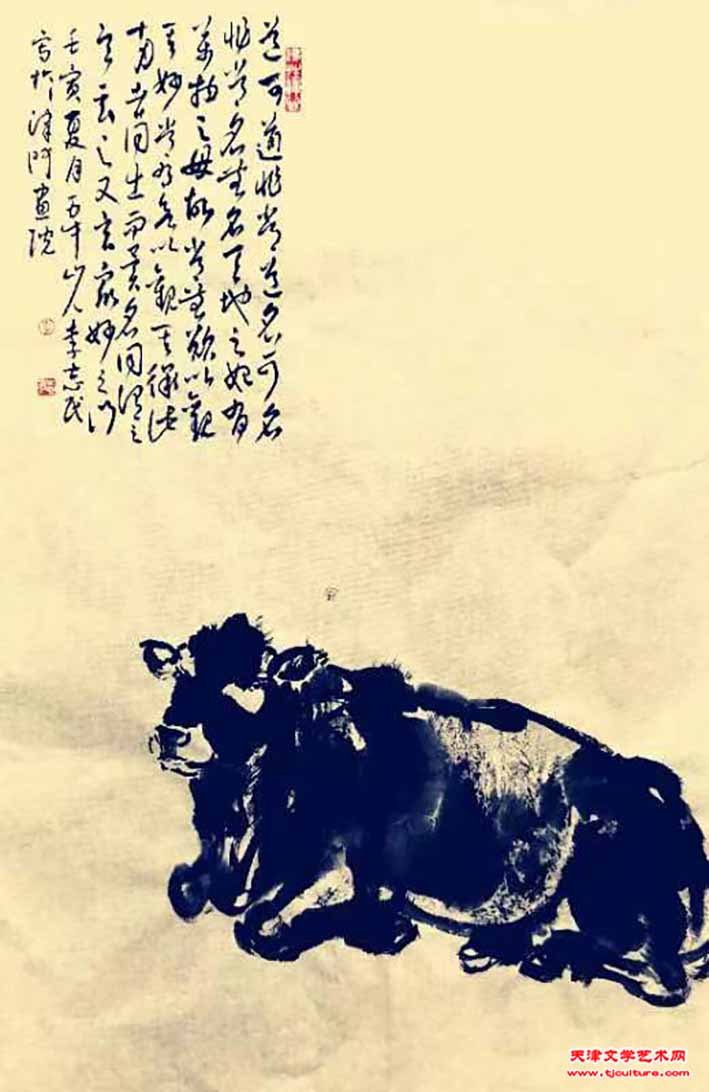 道可道非常道名可名
非常名無名天地之始有
萬物之母故常無欲以觀
其妙常有欲以觀其徼此
兩者同出而異名同謂之
玄玄之又玄衆妙之门
壬寅夏月五牛山人李志民
写於津门畫院
天津文学艺术网
www.tjculture.com